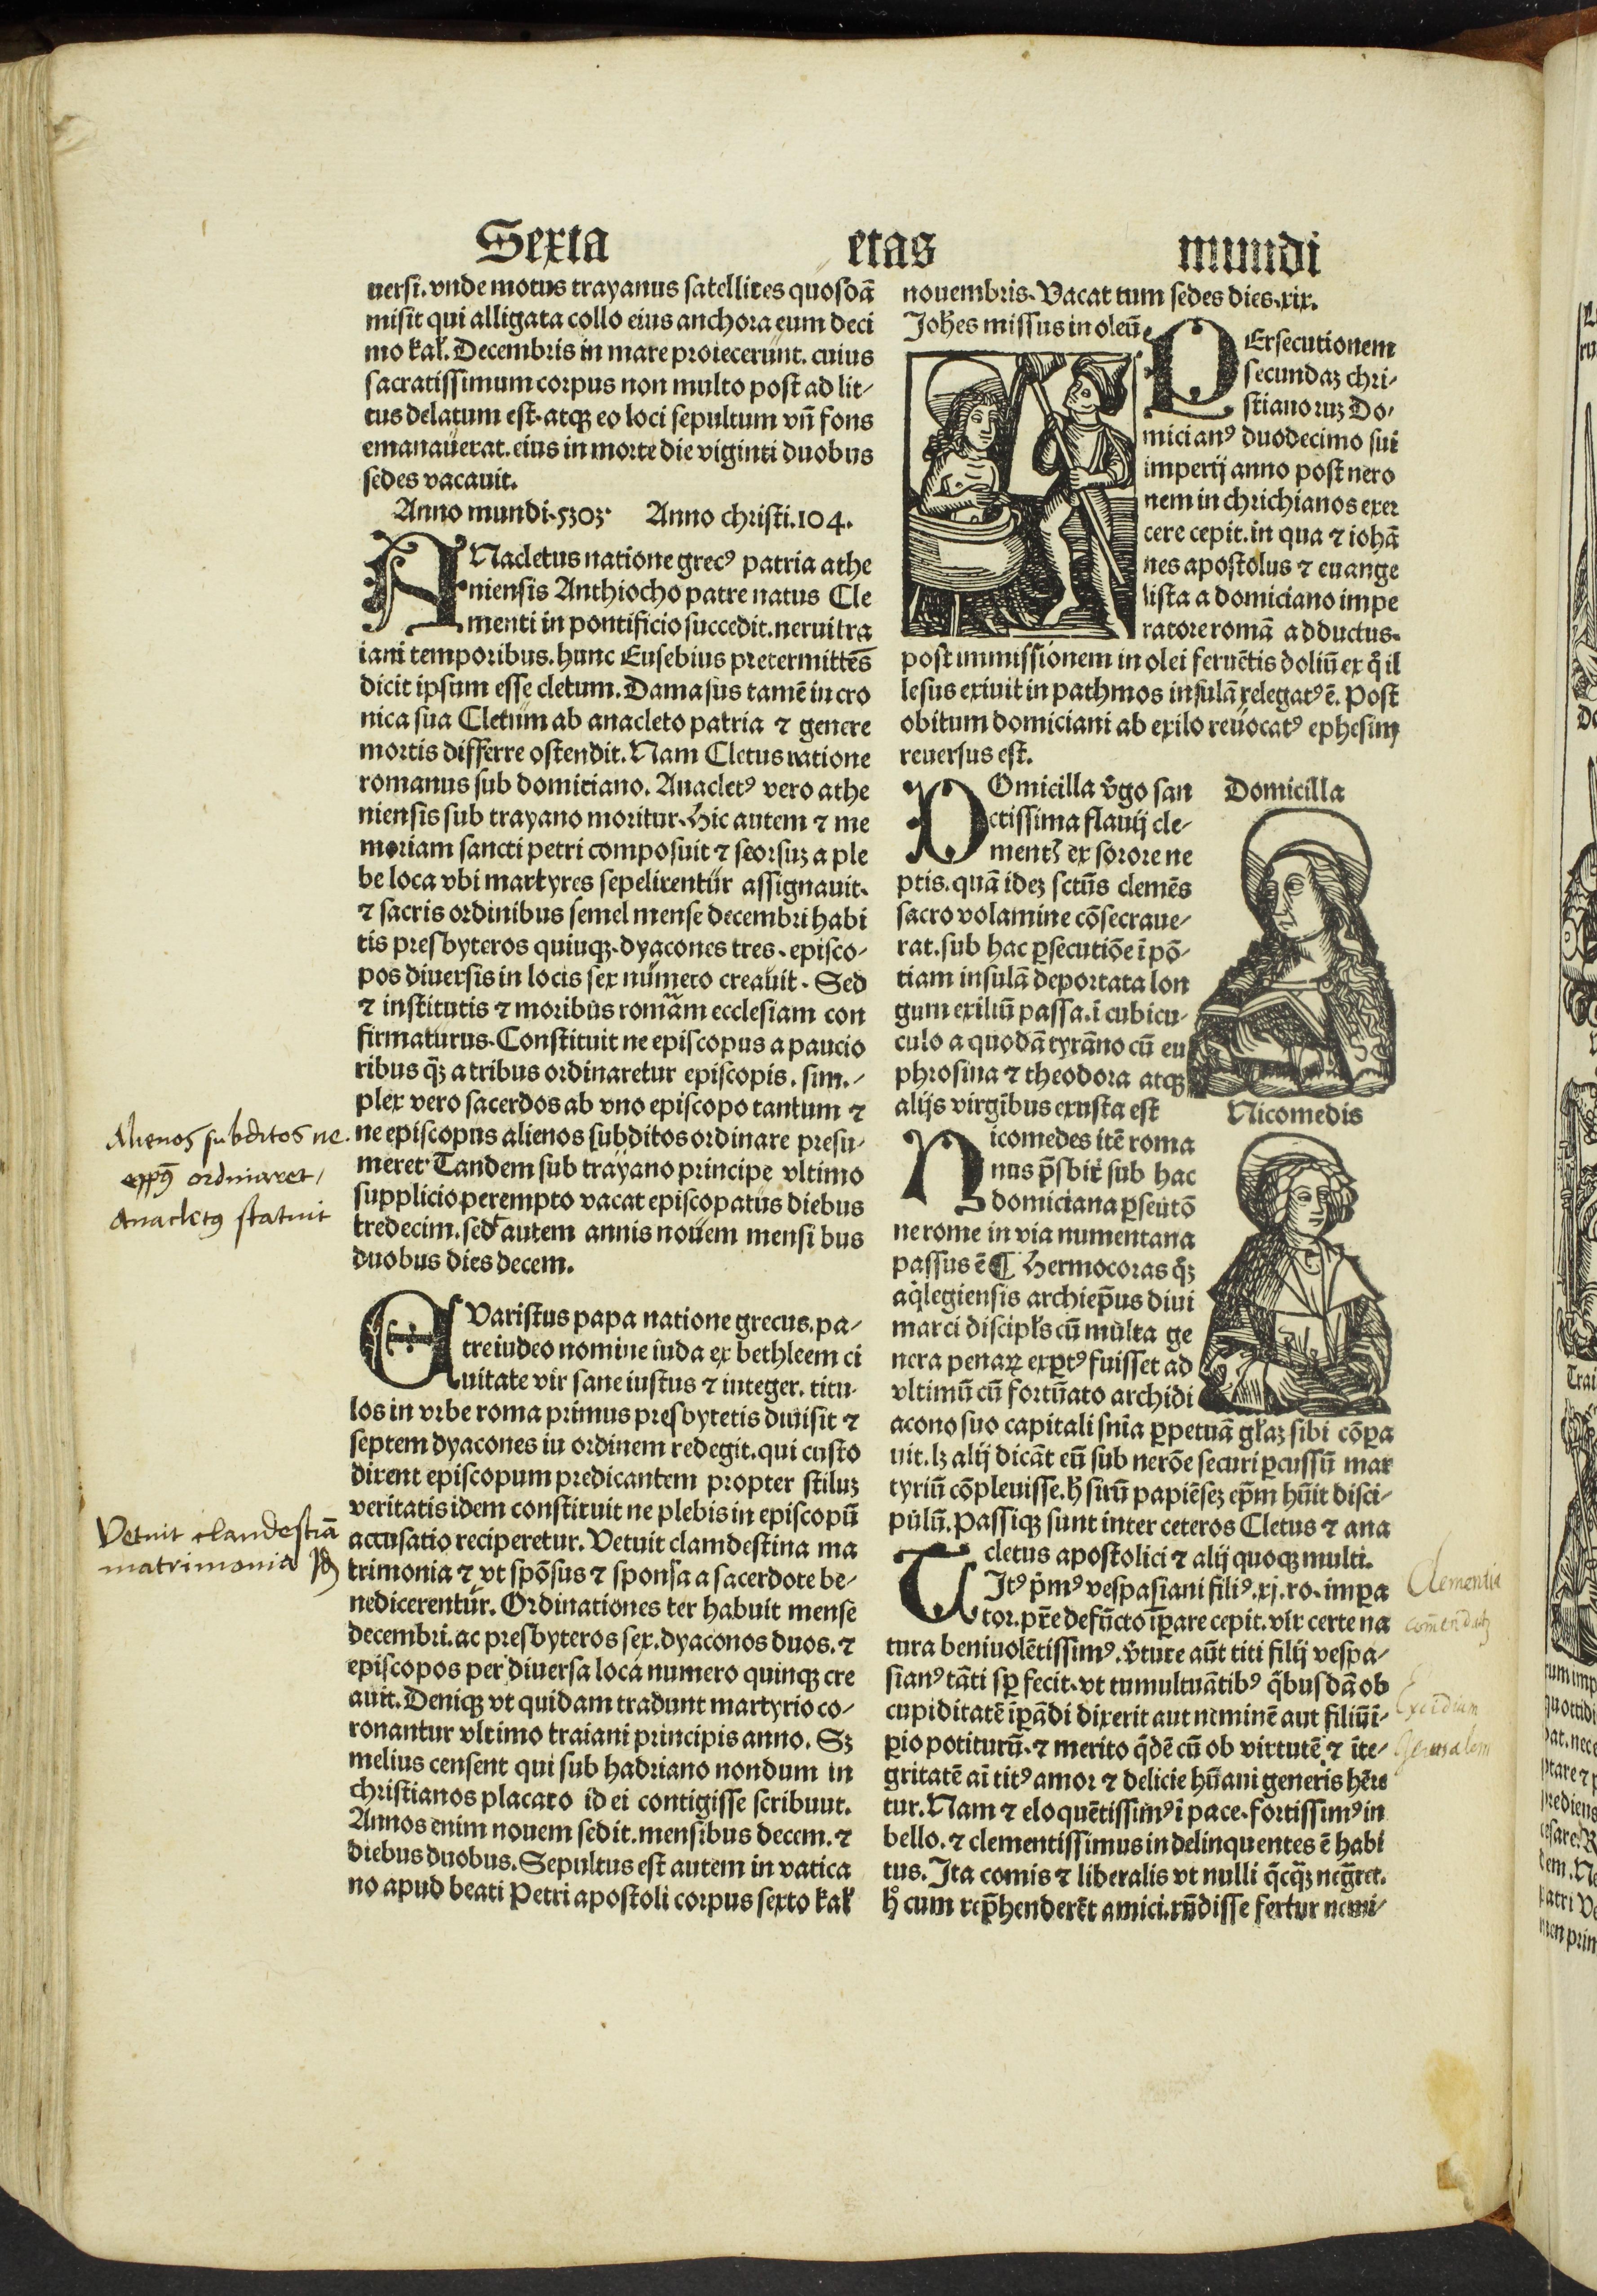 Sexta etas mundi
uersi. vnde motus trayanus satellites quosdā
misit qui alligata collo eius anchora eum deci
mo kaƚ. Decembris in mare proiecerunt. cuius
sacratissimum corpus non multo post ad lit-
tus delatum est. atqꝫ eo loci sepultum vñ fons
emanauerat. eius in morte die viginti duobus
sedes vacauit.
Anno mundi.5303. Anno christi.104.
ANacletus natione grecꝰ patria athe
niensis Anthiocho patre natus Cle
menti in pontificio succedit. nerui tra
iani temporibus. hunc Eusebius pretermittēs
dicit ipsum esse cletum. Damasus tamē in cro
nica sua Cletum ab anacleto patria ⁊ genere
mortis differre ostendit. Nam Cletus natione
romanus sub domitiano. Anacletꝰ vero athe
niensis sub trayano moritur. Hic autem ⁊ me
moriam sancti petri composuit ⁊ seorsuꝫ a ple
be loca vbi martyres sepelirentur assignauit.
⁊ sacris ordinibus semel mense decembri habi
tis presbyteros quinqꝫ. dyacones tres. episco-
pos diuersis in locis sex numero creauit. Sed
⁊ institutis ⁊ moribus romām ecclesiam con
firmaturus. Constituit ne episcopus a paucio
ribus qꝫ̄ a tribus ordinaretur episcopis. sim-
plex vero sacerdos ab vno episcopo tantum ⁊
ne episcopus alienos subditos ordinare presu-
meret Tandem sub trayano principe vltimo
supplicio perempto vacat episcopatus diebus
tredecim. sedᵗ autem annis nouem mensi bus
duobus dies decem.
EVaristus papa natione grecus. pa-
tre iudeo nomine iuda ex bethleem ci
uitate vir sane iustus ⁊ integer. titu-
los in vrbe roma primus presbytetis diuisit ⁊
septem dyacones iu ordinem redegit. qui custo
dirent episcopum predicantem propter stiluꝫ
veritatis idem constituit ne plebis in episcopū
accusatio reciperetur. Vetuit clamdestina ma
trimonia ⁊ vt spōsus ⁊ sponsa a sacerdote be-
nedicerentur. Ordinationes ter habuit mense
decembri. ac presbyteros sex. dyaconos duos. ⁊
episcopos per diuersa loca numero quinqꝫ cre
auit. Deniqꝫ vt quidam tradunt martyrio co-
ronantur vltimo traiani principis anno. Sꝫ
melius censent qui sub hadriano nondum in
christianos placato id ei contigisse scribuut.
Annos enim nouem sedit. mensibus decem. ⁊
diebus duobus. Sepultus est autem in vatica
no apud beati Petri apostoli corpus sexto kaƚ
Alienos subditos ne
eppꝰ ordinaret/
Anacletꝰ statuit
Vetuit clandestinā
matrimonia
nouembris. Vacat tum sedes dies.xix.
Joħes missus in oleū
PErsecutionem
secundaꝫ chri-
stianoruꝫ Do-
micianꝰ duodecimo sui
imperij anno post nero
nem in chrichianos exer
cere cepit. in qua ⁊ iohā
nes apostolus ⁊ euange
lista a domiciano impe
ratore romā adductus.
post immissionem in olei feruētis doliū ex q̊ il
lesus exiuit in pathmos insulā relegatꝰ ē. Post
obitum domiciani ab exilo reuocatꝰ ephesim
reuersus est.
DOmicilla v̄go san
ctissima flauij cle-
mentꝭ ex sorore ne
ptis. quā ideꝫ sctūs clemēs
sacro volamine cōsecraue-
rat. sub hac ꝑsecutiōe ī pō-
tiam insulā deportata lon
gum exiliū passa. ī cubicu-
culo a quodā tyrāno cū eu
phrosina ⁊ theodora atqꝫ
alijs virgībus exusta est
Domicilla
Nicomedis
Nicomedes itē roma
nus p̄sbiṫ sub hac
domiciana ꝑseutō
ne rome in via numentana
passus ē ¶ Hermocoras qꝫ̄
aq̇legiensis archiep̄us diui
marci discipƚs cū multa ge
nera penaꝝ exꝑtꝰ fuisset ad
vltimū cū fortūato archidi
acono suo capitali sn̄ia ꝑpetuā gƚaꝫ sibi cōꝑa
uit. lꝫ alij dicāt eū sub nerōe securi ꝑcussū mar
tyriū cōpleuisse. ħ sirū papiēseꝫ ep̄m hūit disci-
pulū. Passiqꝫ sunt inter ceteros Cletus ⁊ ana
cletus apostolici ⁊ alij quoqꝫ multi.
TJtꝰ p̄mꝰ vespasiani filiꝰ.xj.ro.impa
tor. pr̄e defūcto īꝑare cepit. vir certe na
tura beniuolētissimꝰ. v̄ture aūt titi filij vespa-
sianꝰ tāti sꝑ fecit. vt tumultuātibꝰ q̄busdā ob
cupiditatē īꝑādi dixerit aut neminē aut filiū ī-
ꝑio potiturū. ⁊ merito q̄dē cū ob virtutē ⁊ īte-
gritatē aī titꝰ amor ⁊ delicie hūani generis hēre
tur. Nam ⁊ eloquētissimꝰ ī pace. fortissimꝰ in
bello. ⁊ clementissimus in delinquentes ē habi
tus. Jta comis ⁊ liberalis vt nulli q̄cqꝫ̄ neḡret.
ħ̊ cum rep̄henderēt amici. rn̄disse fertur nemi-
Clementia
com̄endatꝫ
Excidium
Jerusalem